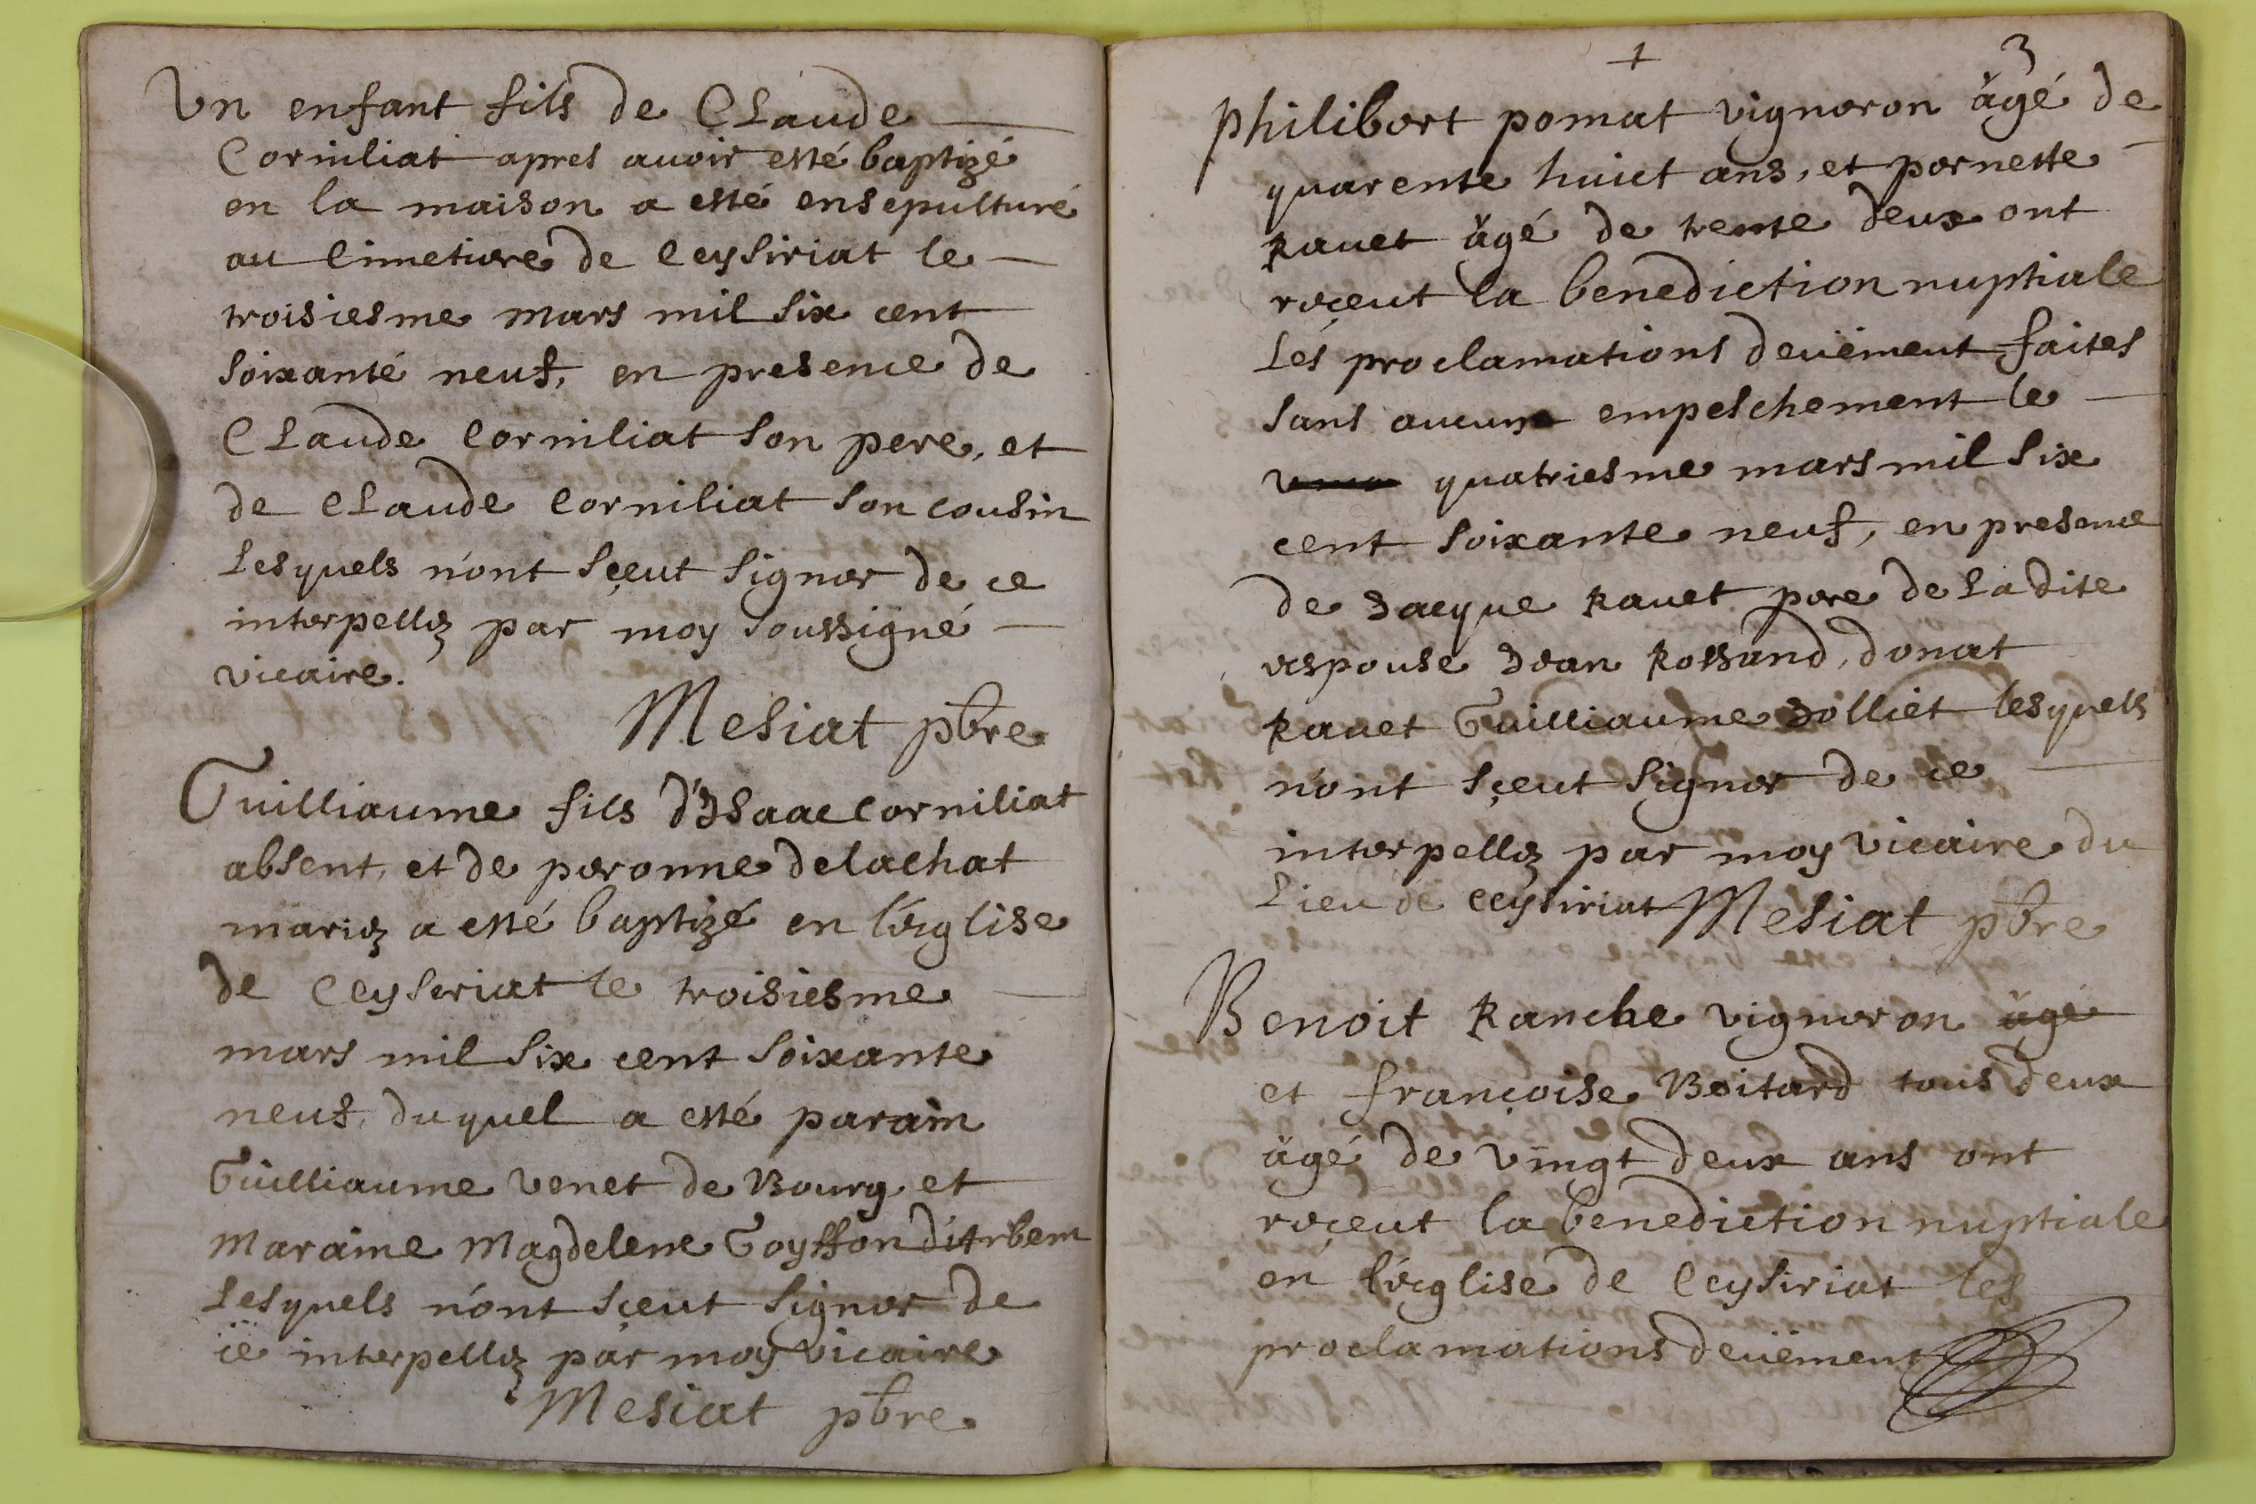 Un enfant fils de Claude
Corniliat apres avoir esté baptizé
en la maison a esté ensepulturé
au Cimetiere de Ceysiriat le
troisiesme mars mil six cent
soixanté neuf, en presence de
Claude Corniliat son pere, et
de Claude Corniliat son cousin
lesquels n'ont sçeut signer de ce
interpellez par moy soussigné
vicaire.
Mesiat pbre
Guilliaume fils d'Isaac Corniliat
absent, et de peronne delachat
mariez a esté baptizé en l'eglise
de Ceyseriat le troisiesme
mars mil six cent soixante
neuf, duquel a esté parain
Guilliaume Venet de Bourg et
Maraine Magdelene Goyffon dit
lesquels n'ont sçeut signer de
ce interpellez par moy vicaire
Mesiat pbre
3
philibert pomat vigneron âgé de
quarente huict ans, et pernette
Ravet âgé de trente deux ont
reçeut la benediction nuptiale
les proclamations deüement faites
sans aucune empeschement le
quatriesme mars mil six
cent soixante neuf, en presence
de Jacque Ravet pere de la dite
espouse Jean Rossand, donat
Ravet Guilliaume Jolliet lesquels
n'ont sçeut signer de ce
interpellez par moy vicaire du
lieu de Ceysiriat Mesiat pbre
Benoit Ranche vigneron âgé
et françoise Boitard tous deux
âgé de vingt deux ans ont
reçeut la benediction nuptiale
en l'eglise de Ceysiriat les
proclamations deüement